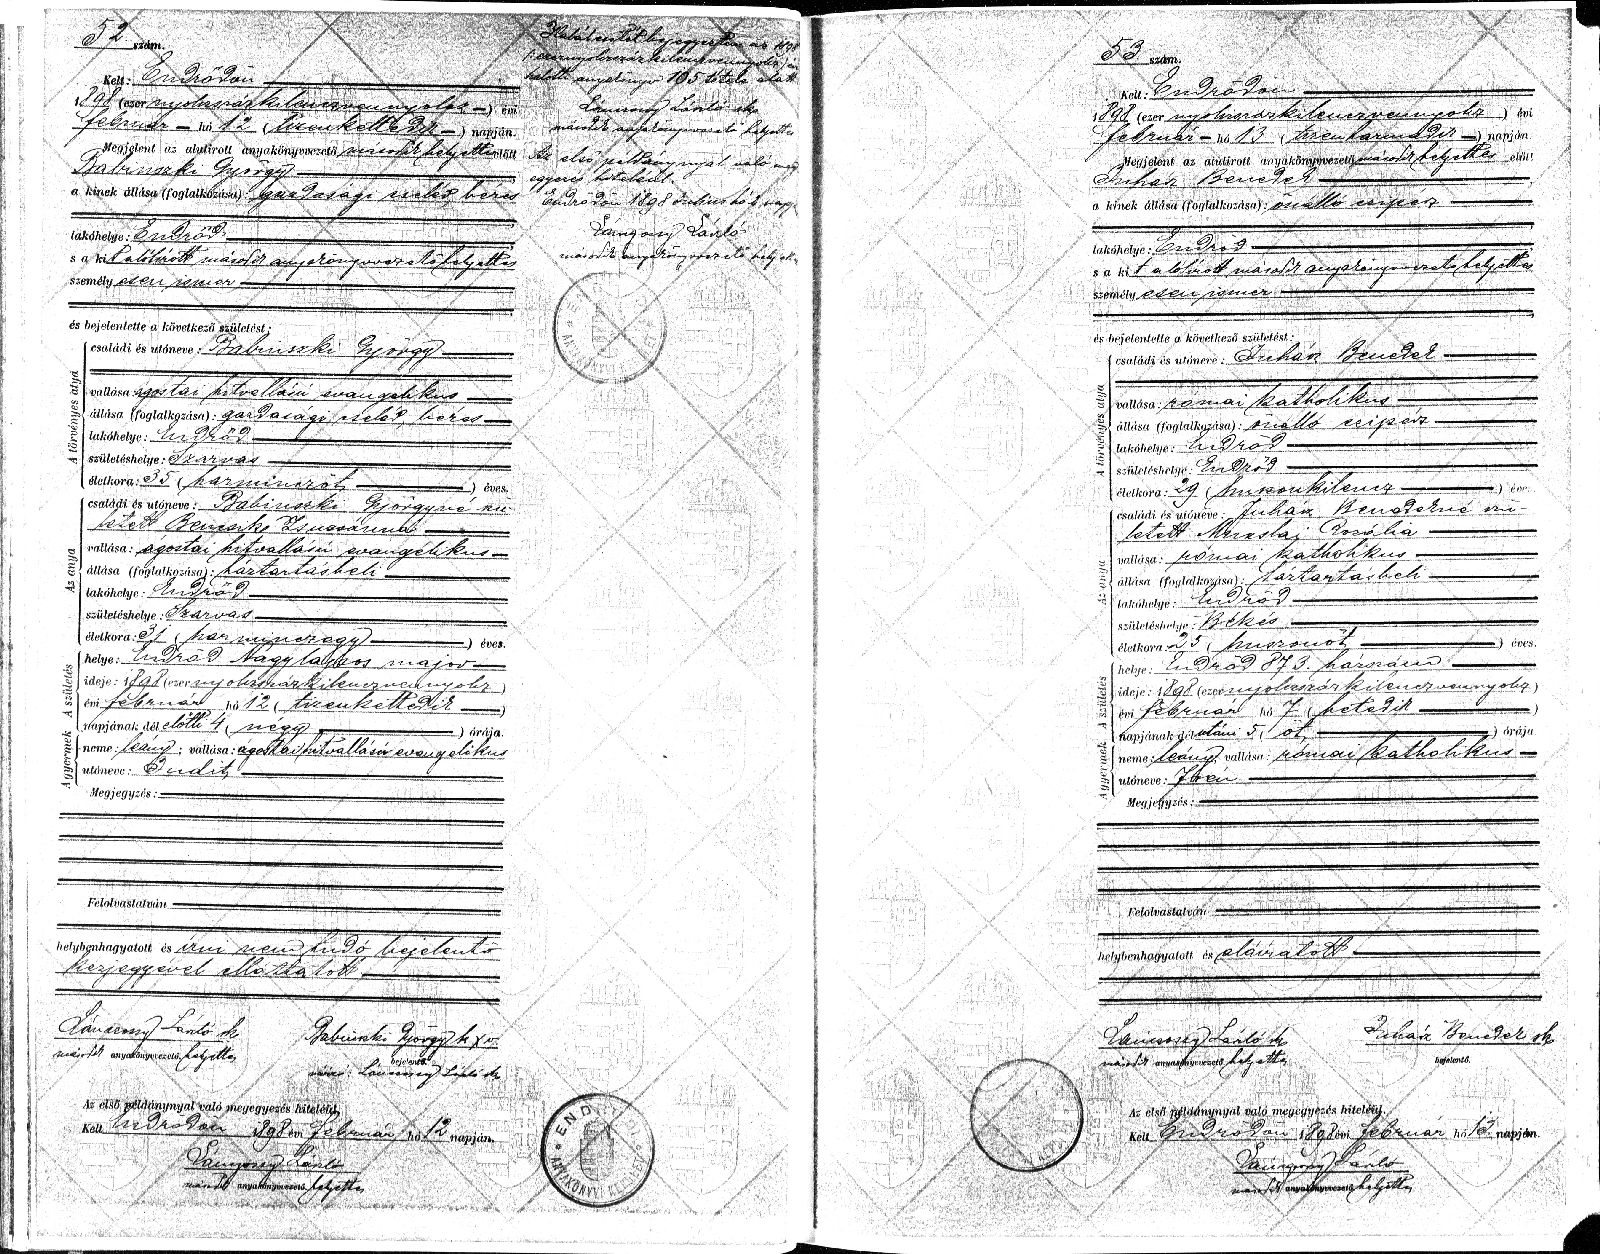 52 szám.
Kelt: Endrődön
1898 (ezer nyolcszázkilenczvennyolcz) évi
február hó 12 (tizenkettedik) napján.
Megjelent az alulírott anyakönyvvezető második helyettes előtt
Babinszki György
a kinek állása (foglalkozása): gazdasági cseléd, béres
lakóhelye: Endrőd
s a kit alólirott második anyakönyvvezető helyettes
személyesen ismer
és bejelentette a következő születést:
A törvényes atya
családi és utóneve: Babinszki György
vallása: ágostai hitvallású evangelikus
állása (foglalkozása): gazdasági cseléd, béres
lakóhelye: Endrőd
születéshelye: Szarvas
életkora: 35 (harminczöt) éves.
Az anya
családi és utóneve: Babinszki Györgyné szü-
letett Zsuzsánna
vallása: ágostai hitvallású evangélikus
állása (foglalkozása): háztartásbeli
lakóhelye: Endrőd
születéshelye: Szarvas
életkora: 31 (harminczegy) éves.
A születés
helye: Endrőd Nagylapos major
ideje: 1898 (ezer nyolcszázkilenczvennyolcz)
évi február hó 12 (tizenkettedik)
napjának dél előtti 4 (négy) órája.
A gyermek
neme: leány; vallása: ágostai hitvallású evangelikus
utóneve: Judit
Megjegyzés:
Felolvastatván
helybenhagyatott és írni nem tudó bejelentő
kézjegyével elláttatott
László sk
második anyakönyvvezető helyettes
Babinszki György k x v.
bejelentő.
László sk
Az első példánynyal való megegyezés hiteléül.
Kelt Endrődön 1898 évi február hó 12 napján.
László
második anyakönyvvezető helyettes
Halálesetét bejegyeztem az 1898
(ezernyolcszázkilenczvennyolcz) évi
halotti anyakönyv 105 tétele alatt
László sk
második anyakönyvvezető helyettes
Az első példánynyal való meg-
egyezés hiteléül.
Endrődön 1898 hó napj.
László
második anyakönyvvezető helyettes
ENDRŐD
ANYAKÖNYVI KERÜLET
53 szám.
Kelt: Endrődön
1898 (ezer nyolcszázkilenczvennyolcz) évi
február hó 13 (tizenharmadik) napján.
Megjelent az alulírott anyakönyvvezető második helyettes előtt
Juház Benedek
a kinek állása (foglalkozása): önálló csipész
lakóhelye: Endrőd
s a kit alólirott második anyakönyvvezető helyettes
személyesen ismer
és bejelentette a következő születést:
A törvényes atya
családi és utóneve: Juház Benedek
vallása: római katholikus
állása (foglalkozása): önálló csipész
lakóhelye: Endrőd
születéshelye: Endrőd
életkora: 29 (huszonkilencz) éves
Az anya
családi és utóneve: Juház Benedekné szü-
letett Rozália
vallása: római katholikus
állása (foglalkozása): háztartásbeli
lakóhelye: Endrőd
születéshelye: Békés
életkora: 25 (huszonöt) éves.
A születés
helye: Endrőd 873 házszám
ideje: 1898 (ezer nyolcszázkilenczvennyolcz)
évi február hó 7 (hetedik)
napjának dél utáni 5 (öt) órája
A gyermek
neme: leány; vallása: római katholikus
utóneve:
Megjegyzés:
Felolvastatván
helybenhagyatott és aláíratott
László sk
második anyakönyvvezető helyettes
Juház Benedek sk
bejelentő.
Az első példánynyal való megegyezés hiteléül.
Kelt Endrődön 1898 évi február hó 13 napján.
László
második anyakönyvvezető helyettes